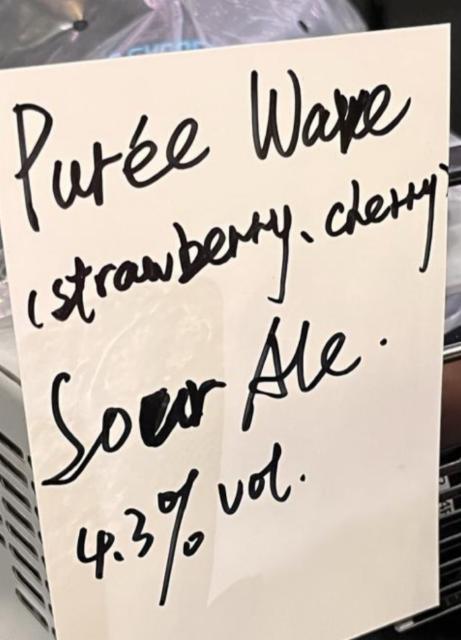 Purée Wave
(strawberry、cherry)
Sour Ale.
4.3% vol.